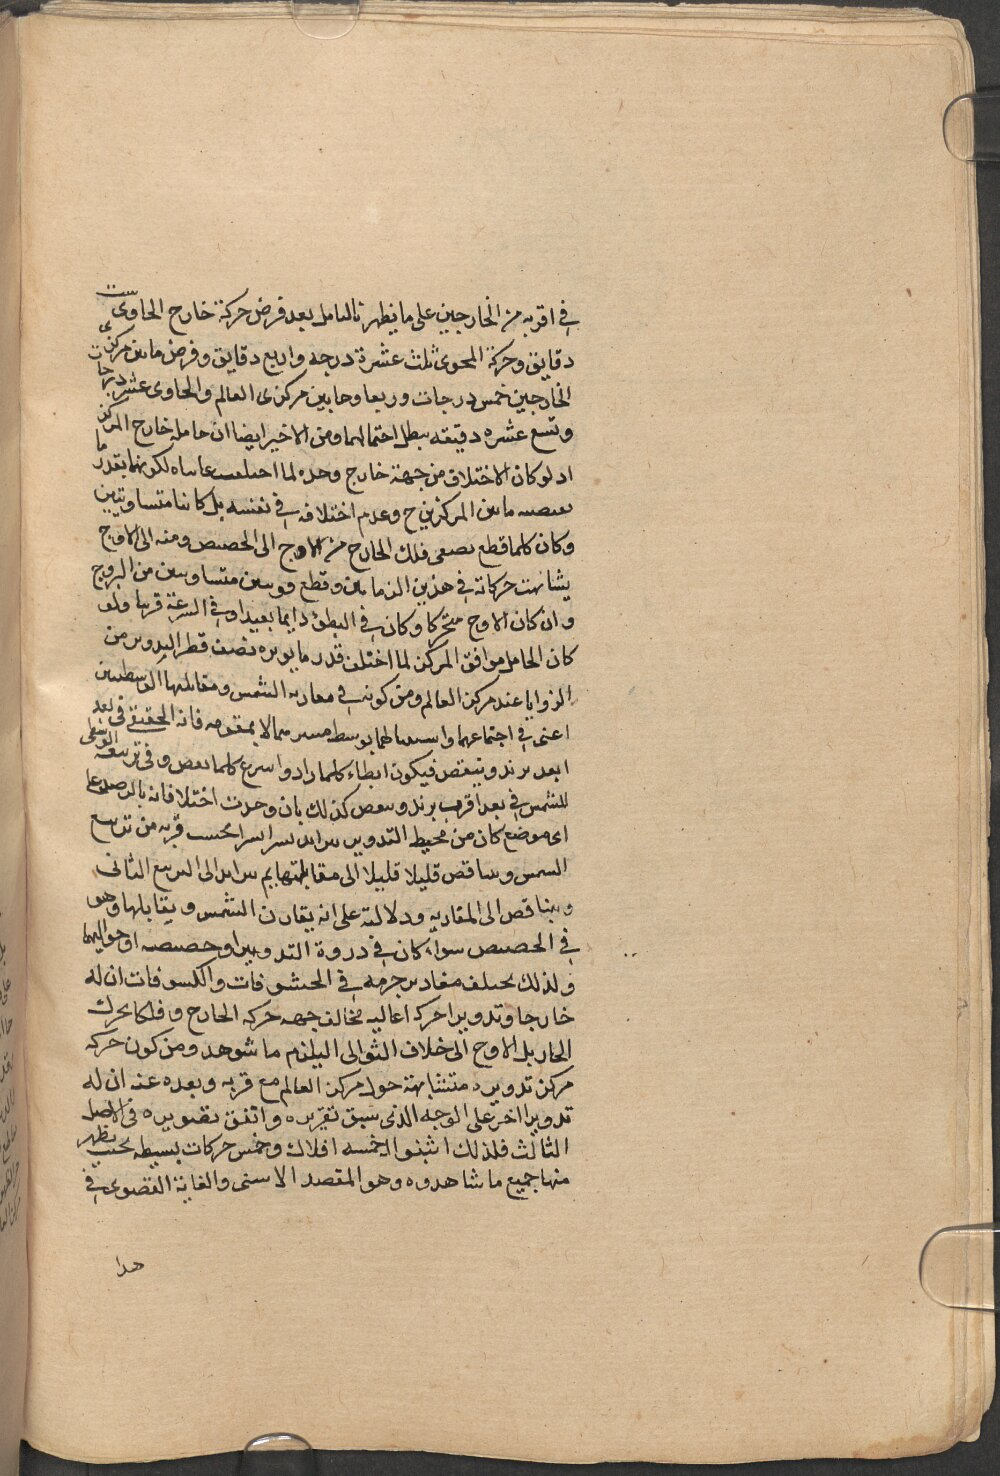 في اقربه من الخارجين على ما يظهر بالتامل بعد فرض حركة خارج الحاوى ست
دقايق وحركة المحوى ثلث عشرة درجه واربع دقايق وفرض ما بين مركزى
الخارجين خمس درجات وربعا وما بين مركزى العالم والحاوى عشر درجات
وتسع عشره دقيقه يبطل احتمالهما ومن الاخير ايضا ان حامله خارج المركز
اذ لو كان الاختلاف من جهة خارج وحده لما اختلفت غايتاه لكونهما بقدر ما
يقتضيه ما بين المركزين ح وعدم اختلافه في نفسه بل كانتا متساويتين
وكان كلما قطع نصفى فلك الخارج من الاوج الى الحضيض ومنه الى الاوج
يشابهت حركاته في هذين الزمانين وقطع قوسين متساويتين من البروج
وان كان الاوج متحركا وكان في البطؤ دايما بعيدا وفي السرعة قريبا ولو
كان الحامل موافق المركز لما اختلف قدر ما يوتره نصف قطر التدوير من
الزوايا عند مركز العالم ومن كونه في مقاربه الشمس ومقابلتها الوسطيين
اعنى في اجتماعهما واستقبالهما بوسط مسيرهما لا بمقومه فانه الحقيقى في بعد
ابعد يزيد وينقص فيكون ابطاء كلما زاد واسرع كلما نقص وفي تربيعه الوسطى
للشمس في بعد اقرب يزيد وينقص كذلك بان وجدت اختلافاته بالرصد على
اى موضع كان من محيط التدوير يتزايد يسيرا يسيرا بحسب قربه من تربيع
الشمس ويتناقص قليلا قليلا الى مقابلتها ثم يتزايد الى التربيع الثانى
ويتناقص الى المقاربه ودلالته على انه يقارن الشمس ويقابلها وهو
في الحضيض سواء كان في ذروة التدوير او حضيضه او حواليهما
ولذلك يختلف مقادير جرمه في الخسوفات والكسوفات ان له
خارجا وتدويرا حركه اعاليه تخالف جهه حركه الخارج وفلكا يحرك
الخارج بل الاوج الى خلاف التوالى ليلزم ما شوهد ومن كون حركه
مركز تدويره متشابهة حول مركز العالم مع قربه وبعده عنه ان له
تدويرا اخر على الوجه الذى سبق تقريره واتفق تصويره في الاصل
الثالث فلذلك اثبتوا له خمسه افلاك وخمس حركات بسيطه بحيث يظهر
منها جميع ما شاهدوه وهو المقصد الاسنى والغاية القصوى في
هذا